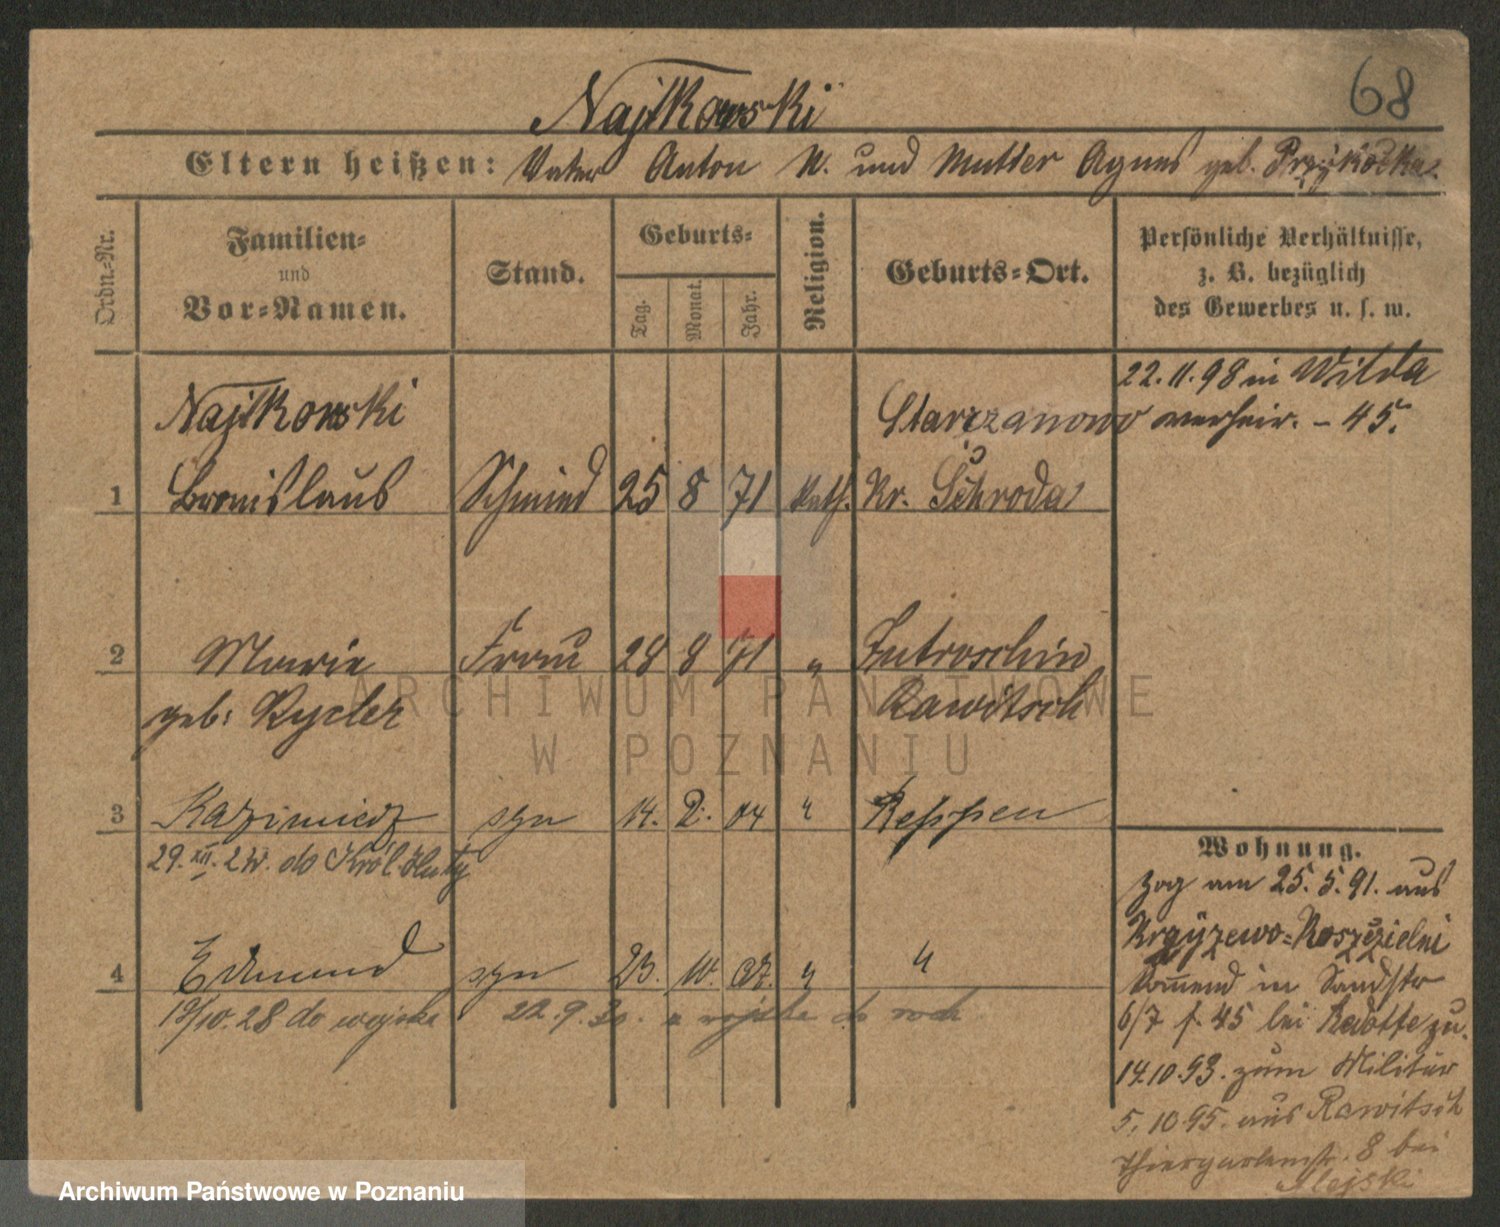 68
Najtkowski
Eltern heißen: Vater Anton N. und Mutter Agnes geb. Przykocka.
Ordn.=Nr.
Familien=
und
Vor=Namen.
Stand.
Geburts=
Tag.
Monat.
Jahr.
Religion.
Geburts=Ort.
Persönliche Verhältnisse,
z. B. bezüglich
des Gewerbes u. s. w.
22.11.98 in Wilda
verheir. - 45.
Najtkowski Starczanowo
1 Bronislaus Schmied 25 8 71 kath. Kr. Schroda
2 Marie Frau 28 8 71 " Jutroschin
geb: Rycler Rawitsch
3 Kazimierz syn 14. 2. 04 " Reppen
29. XII. 2 do Król. Huty
4 Edmund syn 23. 10. 07. " "
19/10. 28 do wojska 22. 9. 30. z wojska do
Wohnung.
Zog am 25. 5. 91. aus
Krzyżewo=Koszczielni
kommend in Sandstr
6/7 f. 45 bei zu.
14.10.93. zum Militär
5. 10 95. aus Rawitsch
Thiergartenstr. 8 bei
Alejski
ARCHIWUM PAŃSTWOWE
W POZNANIU
Archiwum Państwowe w Poznaniu